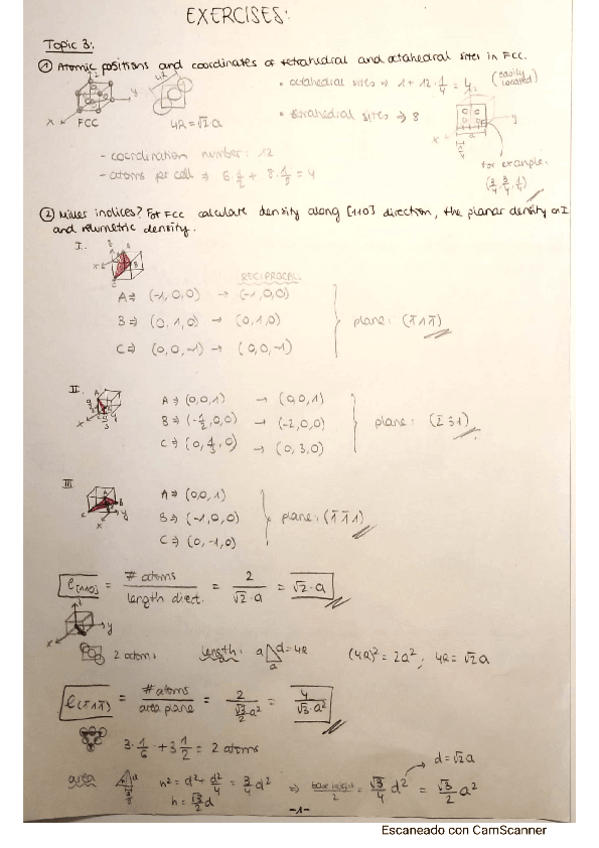 EXERCISES:
Topic 3:
① Atomic positions and coordinates of tetrahedral and octahedral sites in FCC.
4R
• octahedral sites ⇒ 1 + 12 · 1/4 = 4 (easily located)
x y FCC 4R = √2 a
• tetrahedral sites ⇒ 8
- coordination number: 12
- atoms per cell ⇒ 6 · 1/2 + 8 · 1/8 = 4
for example:
(3/4, 3/4, 1/4)
② Miller indices? For FCC calculate density along [110] direction, the planar density on I
and volumetric density.
I.
RECIPROCAL
A ⇒ (-1, 0, 0) → (-1, 0, 0)
B ⇒ (0, 1, 0) → (0, 1, 0) plane: (1̄ 1 1̄)
C ⇒ (0, 0, -1) → (0, 0, -1)
II.
A ⇒ (0, 0, 1) → (0, 0, 1)
B ⇒ (-1/2, 0, 0) → (-2, 0, 0) plane: (2̄ 3 1)
C ⇒ (0, 1/3, 0) → (0, 3, 0)
III
A ⇒ (0, 0, 1)
B ⇒ (-1, 0, 0) plane: (1̄ 1̄ 1)
C ⇒ (0, -1, 0)
ρ[110] = # atoms / length direct. = 2 / √2 · a = √2 · a
2 atoms length: a d = 4R a (4R)² = 2a²; 4R = √2 a
ρ(1̄11̄) = # atoms / area plane = 2 / (√3/2) a² = 4 / √3 · a²
3 · 1/6 + 3 1/2 = 2 atoms
d = √2 a
area h² = d² + d²/4 = 3/4 d² ⇒ base · height / 2 = √3/4 d² = √3/2 a²
h = √3/2 d
-1-
Escaneado con CamScanner